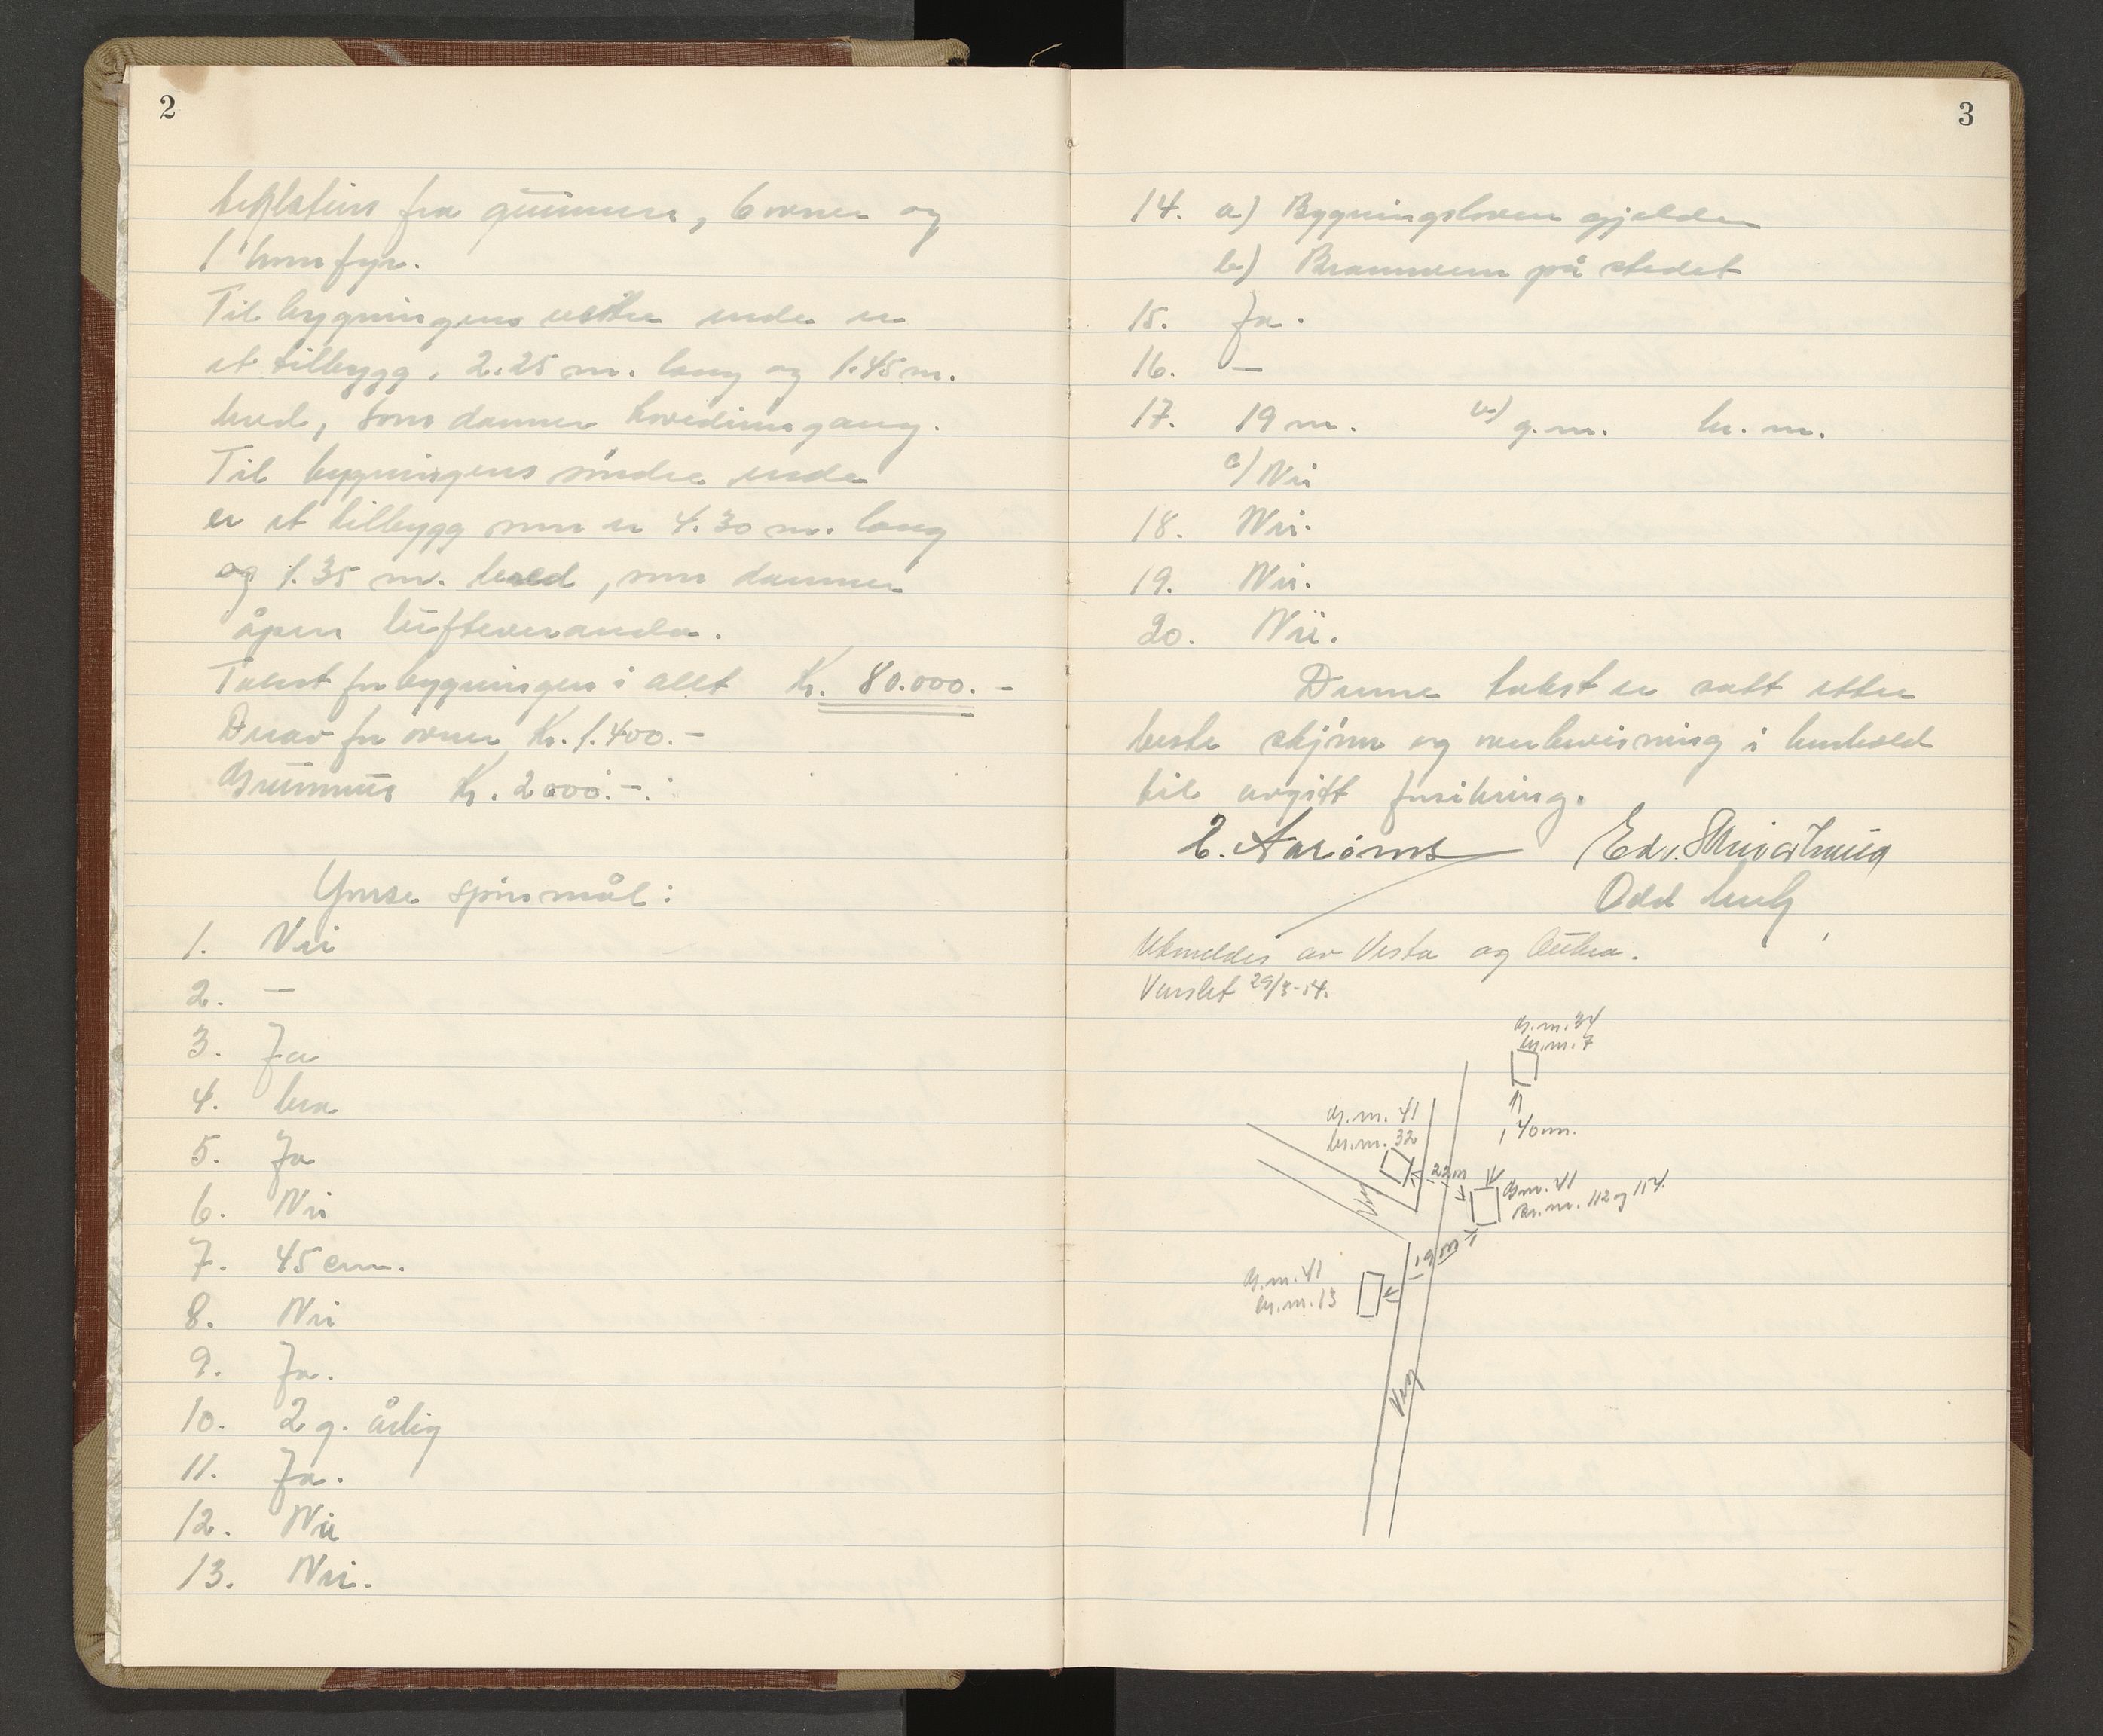 2
fra grunnmur, 6 ovner og
1 komfyr.
Til bygningens vestre ende er
et tilbygg, 2.25 m. lang og 1.45 m.
bred, som danner hovedinngang.
Til bygningens söndre ende
er et tilbygg som er 4.30 m. lang
og 1.35 m. bred, som danner
åpen lufteveranda.
Takst for bygningen i alt Kr. 80.000.-
Derav for ovner Kr. 1.400.-
Grunnmur Kr. 2000.-
Ymse spörsmål:
1. Nei
2. —
3. Ja
4. bra
5. Ja
6. Nei
7. 45 cm.
8. Nei
9. Ja.
10. 2 g. årlig
11. Ja.
12. Nei
13. Nei.
3
14. a) Bygningsloven gjelder
b) Brannvern på stedet
15. Ja.
16. —
17. 19 m. b) g.nr. br.nr.
c) Nei
18. Nei.
19. Nei.
20. Nei.
Denne takst er satt etter
beste skjönn og overbevisning i henhold
til avgitt forsikring.
Edv.
Odd
Utmeldes av Vesta og
Varslet 29/3-54.
Gr.nr. 34
br.nr. 7
40 m.
Gr.nr. 41
br.nr. 32
22 m
Gr.nr. 41
Br.nr. 112 og 114.
Vei
19 m
Gr.nr. 41
br.nr. 13
Vei